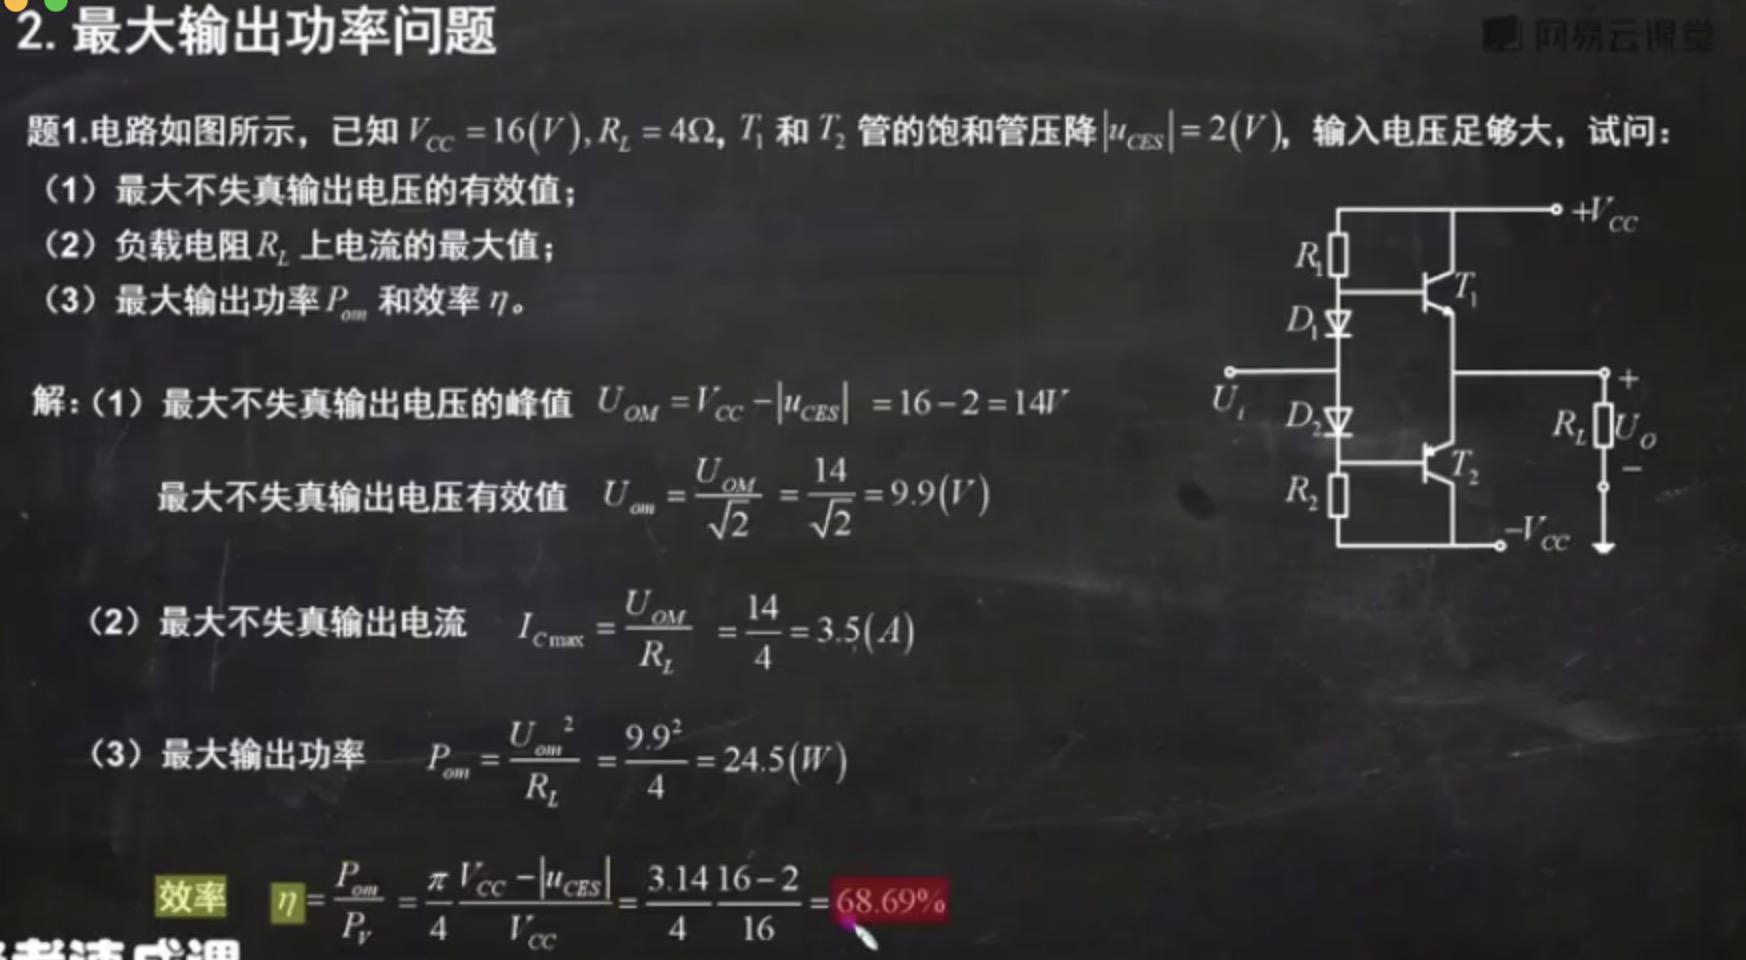 2. 最大输出功率问题
网易云课堂
题1.电路如图所示，已知 V_CC = 16(V), R_L = 4Ω, T_1 和 T_2 管的饱和管压降|u_CES| = 2(V)，输入电压足够大，试问：
（1）最大不失真输出电压的有效值；
（2）负载电阻 R_L 上电流的最大值；
（3）最大输出功率 P_om 和效率 η。
+V_CC
R_1
T_1
D_1
U_i
D_2
R_2
T_2
-V_CC
+
R_L
U_O
−
解：（1）最大不失真输出电压的峰值 U_OM = V_CC − |u_CES| = 16 − 2 = 14V
最大不失真输出电压有效值 U_om = U_OM/√2 = 14/√2 = 9.9(V)
（2）最大不失真输出电流 I_Cmax = U_OM/R_L = 14/4 = 3.5(A)
（3）最大输出功率 P_om = U_om²/R_L = 9.9²/4 = 24.5(W)
效率 η = P_om/P_V = π/4 (V_CC − |u_CES|)/V_CC = 3.14/4 (16 − 2)/16 = 68.69%
考速成课